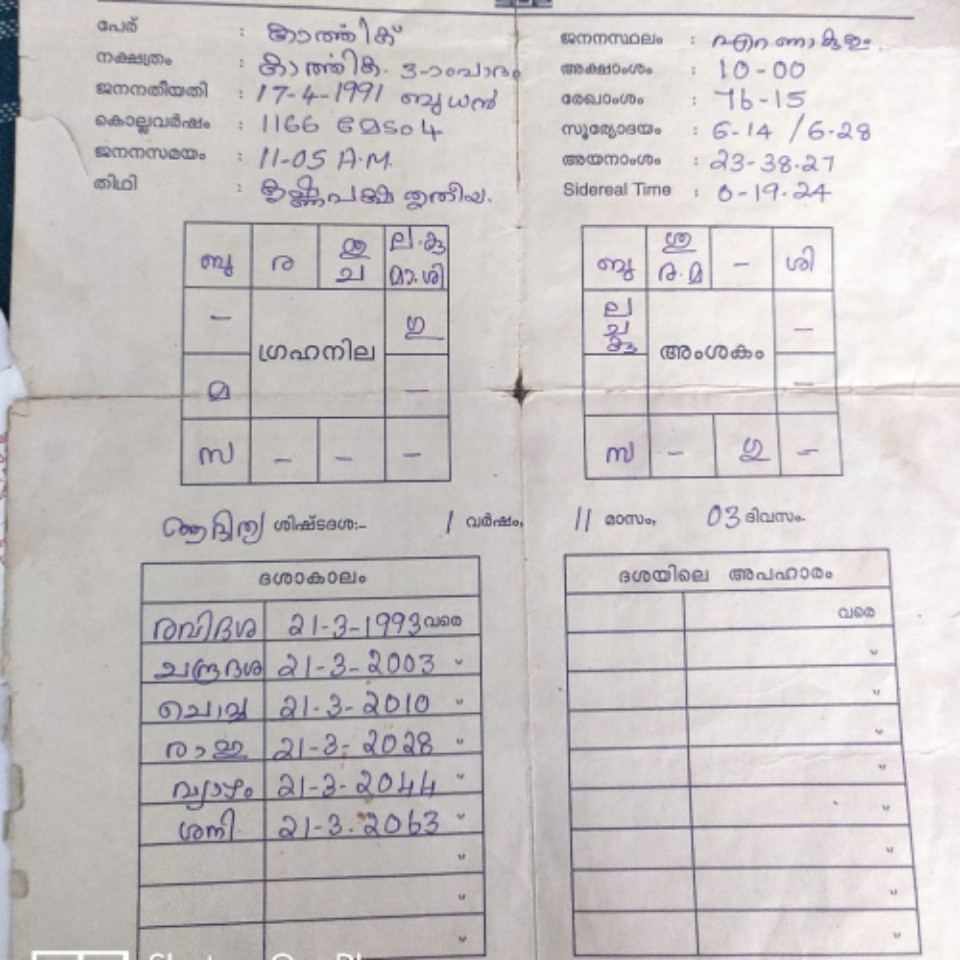 പേര് : കാർത്തിക്
നക്ഷത്രം : കാർത്തിക. 3-ാംപാദം
ജനനതീയതി : 17-4-1991 ബുധൻ
കൊല്ലവർഷം : 1166 മേടം 4
ജനനസമയം : 11-05 A.M.
തിഥി : കൃഷ്ണപക്ഷ തൃതീയ.
ജനനസ്ഥലം : എറണാകുളം.
അക്ഷാംശം : 10-00
രേഖാംശം : 76-15
സൂര്യോദയം : 6-14 /6-28
അയനാംശം : 23-38-27
Sidereal Time : 0-19-24
ബു ര ശു ച ല.കു മാ.ശി
- ഗു
ഗ്രഹനില
മ -
സ - - -
ബു ശു ര.മ - ശി
ല ച കു -
അംശകം
-
സ - ഗു -
ആദിത്യ ശിഷ്ടദശ:- 1 വർഷം, 11 മാസം, 03 ദിവസം.
ദശാകാലം
രവിദശ 21-3-1993 വരെ
ചന്ദ്രദശ 21-3-2003 "
ചൊവ്വ 21-3-2010 "
രാഹു 21-3-2028 "
വ്യാഴം 21-3-2044 "
ശനി 21-3-2063 "
"
"
"
ദശയിലെ അപഹാരം
വരെ
"
"
"
"
"
"
"
"